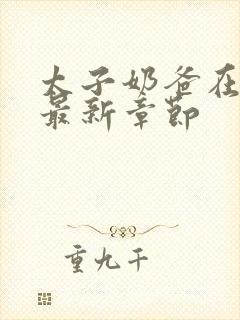 太子奶爸在
最新章节
重九千